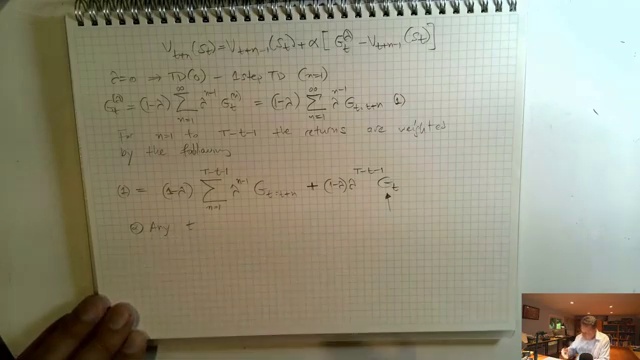 V_{t+n}(S_t) = V_{t+n-1}(S_t) + α[G_t^{(λ)} - V_{t+n-1}(S_t)]
λ=0 ⇒ TD(0) - 1 step TD (n=1)
G_t^{(λ)} = (1-λ) ∑_{n=1}^{∞} λ^{n-1} G_t^{(n)} = (1-λ) ∑_{n=1}^{∞} λ^{n-1} G_{t:t+n} (1)
For n=1 to T-t-1 the returns are weighted
by the following
(1) = (1-λ) ∑_{n=1}^{T-t-1} λ^{n-1} G_{t:t+n} + (1-λ) λ^{T-t-1} G_t
Any t